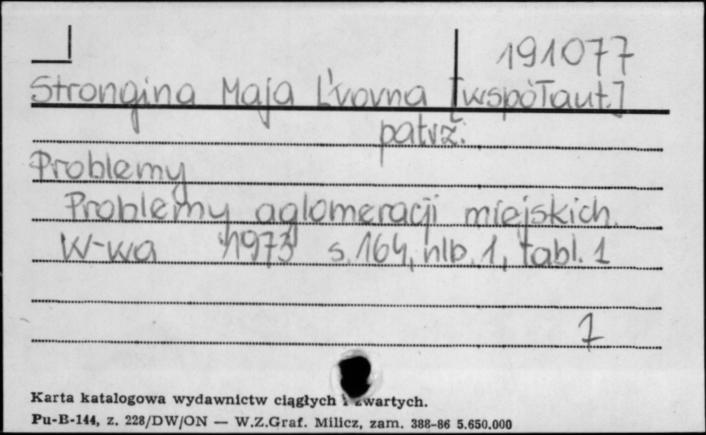 191077
Strongina Maja L'vovna [współaut.]
patrz:
Problemy
Problemy aglomeracji miejskich.
W-wa 1973 s. 164, nlb. 1, tabl. 1
7
Karta katalogowa wydawnictw ciągłych i zwartych.
Pu-B-144, z. 228/DW/ON — W.Z.Graf. Milicz, zam. 388-86 5.650.000